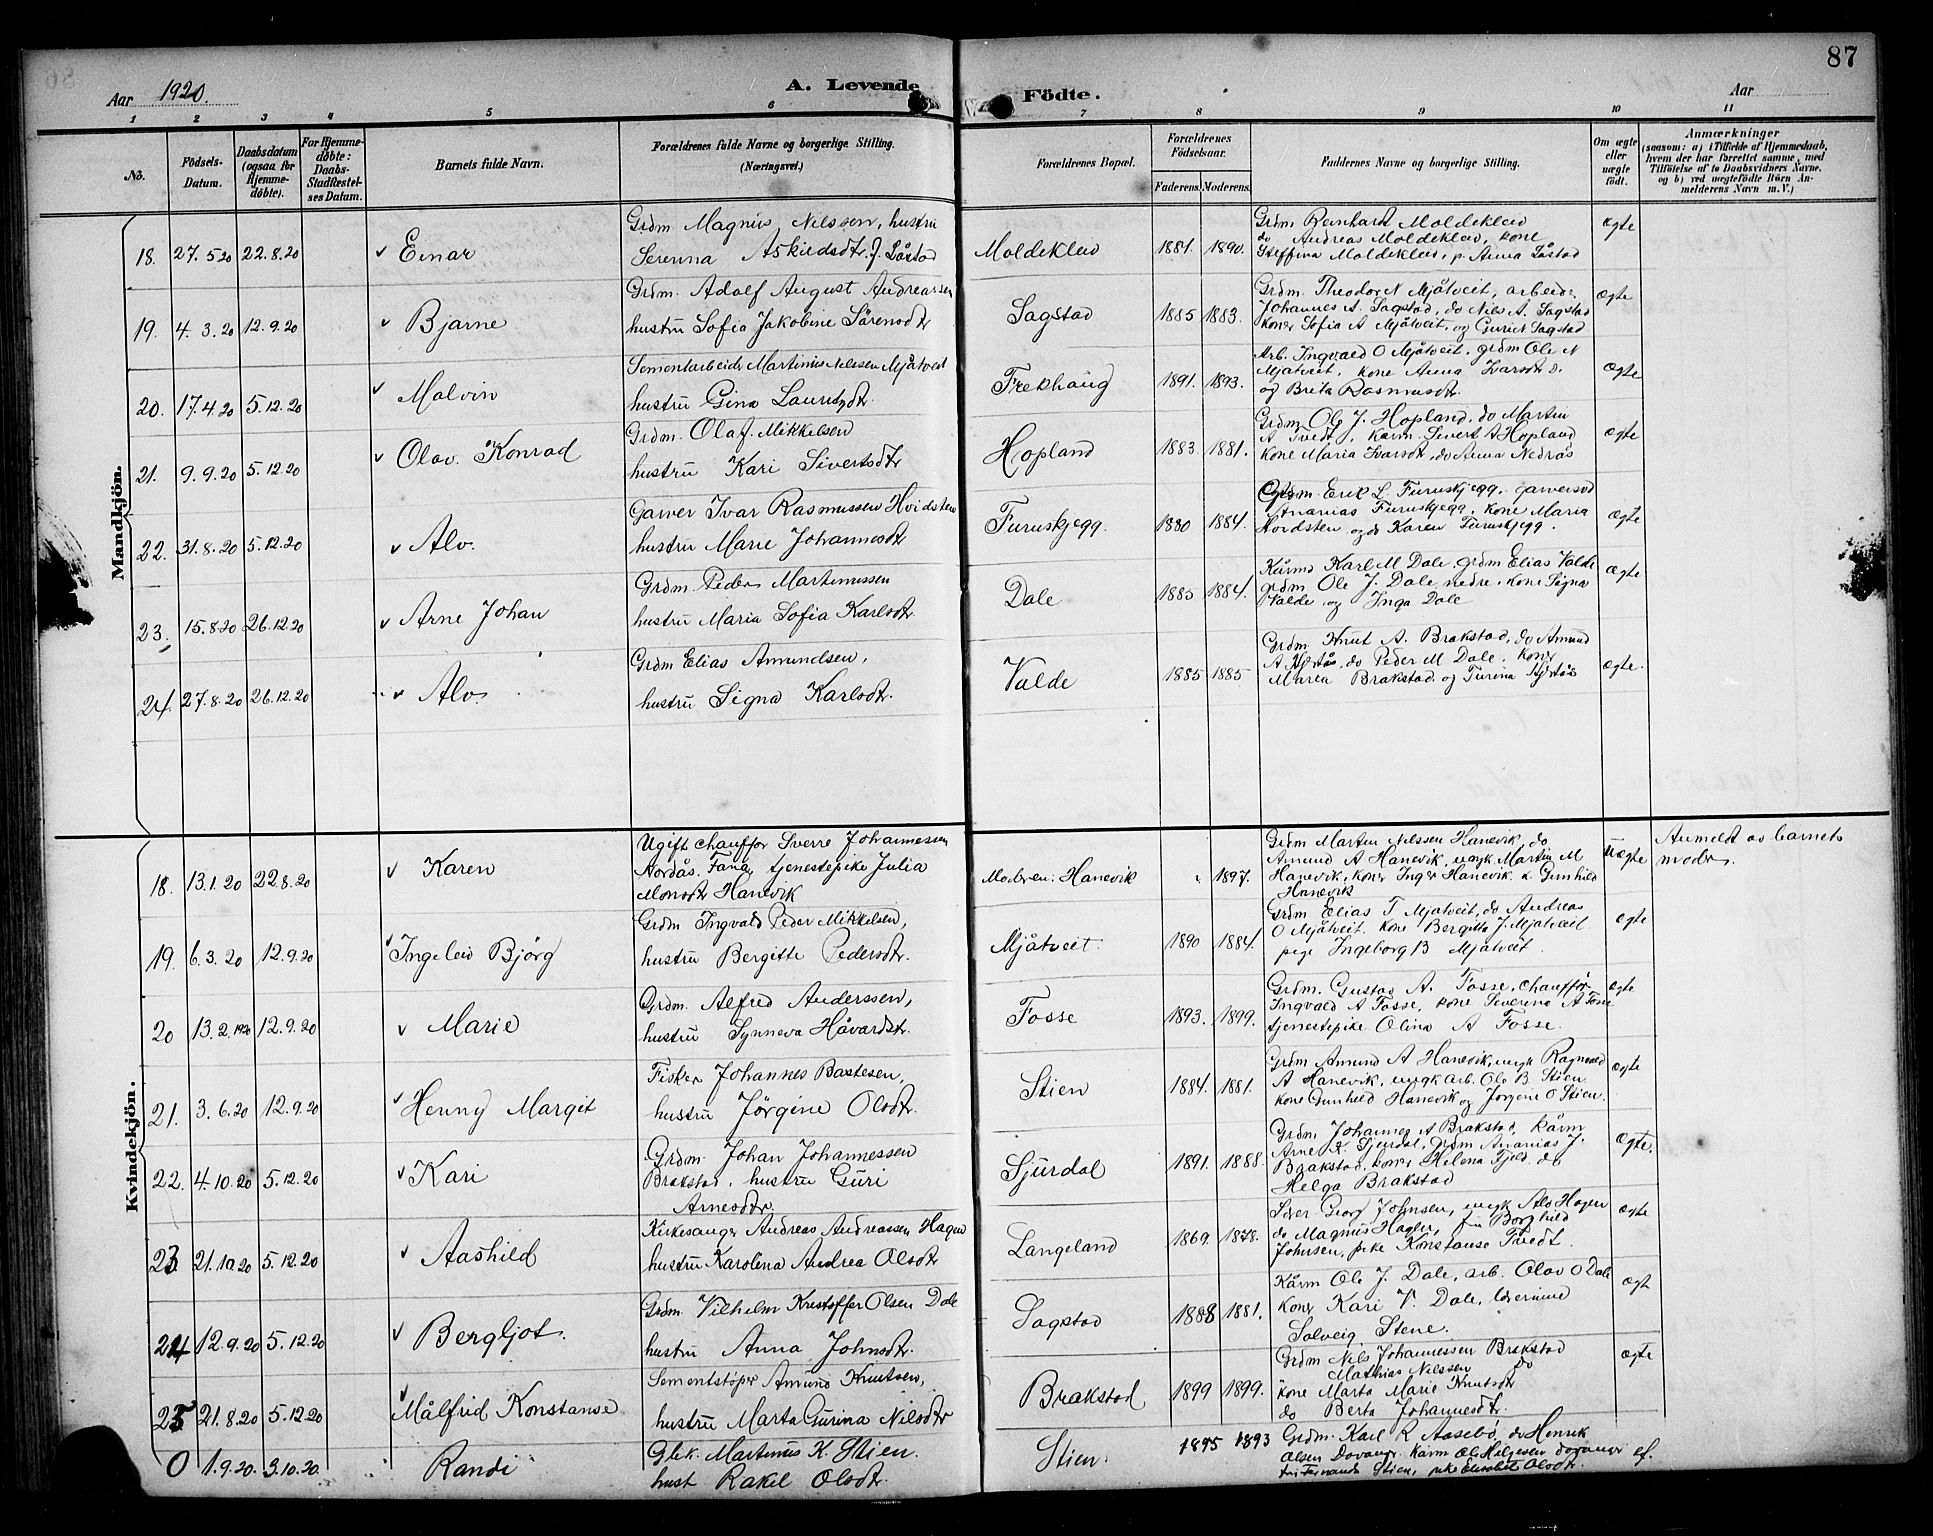 87
Aar 1920.
A. Levende Födte.
Aar
1 2 3 4 5 6 7 8 9 10 11
No.
Födsels-Datum.
Daabsdatum (ogsaa for Hjemmedöbte).
For Hjemmedöbte: Daabs-Stadfæstelses Datum.
Barnets fulde Navn.
Forældrenes fulde Navne og borgerlige Stilling.
(Næringsvei.)
Forældrenes Bopæl.
Forældrenes Födselsaar.
Faderens. Moderens.
Faddernes Navne og borgerlige Stilling.
Om ægte eller uægte födt.
Anmærkninger
(saasom: a) i Tilfælde af Hjemmedaab, hvem der har forrettet samme, med Tilföielse af to Daabsvidners Navne, og b) ved uægtefödte Börn Anmelderens Navn m. V.)
Mandkjön.
18. 27.5.20 22.8.20 Einar
Grdm Magnus Nilssen, hustru
Serenna Askiedsdtr. J. Låstad
Moldekleiv 1881. 1890.
Grdm Reinhard Moldekleiv
do Andreas Moldekleiv, kone
Steffina Moldekleiv, p. Anna Låstad
ægte
19. 4.3.20 12.9.20 Bjarne
Grdm. Adolf August Andreassen
hustru Sofia Jakobine Sörensdtr
Sagstad 1885 1883.
Grdm. Theodor N Mjåtveit, arbeidr.
Johannes A. Sagstad, do Nils A. Sagstad
koner Sofia A Mjåtveit, og Guri N Sagstad
ægte
20. 17.4.20 5.12.20 Malvin
Sementarbeidr Martinus Nilssen Mjåtveit
hustru Gina Lauridsdtr.
Frekhaug 1891. 1893.
Arb. Ingvald O Mjåtveit, grdm Ole N
Mjåtveit, kone Anna Ivarsdtr
og Brita Rasmusdtr.
ægte
21. 9.9.20 5.12.20 Olav Konrad
Grdm. Olaf Mikkelsen
hustru Kari Sivertsdtr
Hopland 1883. 1881.
Grdm Ole J. Hopland, do Martin
A Tvedt, kårm. Sivert A Hopland
kone Maria Ivarsdtr, do Anna Nedrås
ægte
22. 31.8.20 5.12.20 Alv.
Garver Ivar Rasmussen Hvidsten
hustru Marie Johannesdtr
Furuskjegg. 1880 1884.
Grdm. Erik L. Furuskjegg, garversvd
Ananias Furuskjegg, kone Maria
Hvidsten og do Karen Furuskjegg.
ægte
23. 15.8.20 26.12.20 Arne Johan
Grdm. Peder Martinussen
hustru Maria Sofia Karlsdtr
Dale 1885 1884.
Kårmd Karl M Dale, grdm Elias Valde
grdm Ole J. Dale nedre, kone Signa
Valde og Inga Dale
ægte
24. 27.8.20 26.12.20 Alv.
Grdm Elias Amundsen,
hustru Signa Karlsdtr.
Valde 1885 1885
Grdm. Knut A. Brakstad, do Amund
A Hjertås, do Peder M Dale. koner
Maria Brakstad og Turina Hjertås
ægte.
Kvindekjön.
18. 13.1.20 22.8.20 Karen
Ugift chauffør Sverre Johannessen
Nordås. Fana, tjenestepike Julia
Monsdtr Hanevik
Moderen: Hanevik 1897.
Grdm Martin Nilssen Hanevik, do
Amund A Hanevik, ungk. Martin M
Hanevik, koner Inger Hanevik & Gunhild
Hanevik
Uægte
Anmeldt av barnets
moder.
19. 6.3.20 12.9.20 Ingeleiv Bjørg
Grdm Ingvald Peder Mikkelsen,
hustru Bergitte Pedersdtr.
Mjåtveit 1890 1884.
Grdm Elias T Mjåtveit, do Andreas
O Mjåtveit, kone Bergitta J. Mjåtveit
pige Ingeborg B Mjåtveit.
ægte
20 13.2.1920 12.9.20 Marie
Grdm. Alfred Anderssen,
hustru Synneva Håvardstr.
Fosse 1893. 1899.
Grdm. Gustav A. Fosse, chauffør
Ingvald A Fosse, kone Severina A Fosse
tjenestepike Olina A Fosse.
ægte
21. 3.6.20 12.9.20 Henny Margit
Fisker Johannes Bastesen,
hustru Jörgine Olsdtr.
Stien 1884. 1881.
Grdm Amund A Hanevik, ungk Ragnvald
A Hanevik, ungk arb. Ole B. Stien
kone Gunhild Hanevik og Jorgene O Stien.
ægte
22. 4.10.20 5.12.20 Kari
Grdm. Johan Johannessen
Brakstad, hustru Guri
Arnesdtr.
Sjurdal 1891. 1888.
Grdm. Johannes A Brakstad, kårm
Arne K. Sjurdal, grdm Ananias J.
Brakstad, koner Helena Fjeld, do
Helga Brakstad
ægte.
23. 21.10.20 5.12.20 Aashild
Kirkesanger Andreas Andreassen Hagen
hustru Karolina Andrea Olsdtr
Langeland 1869. 1878.
Lærer Georg Johnsen, ungk Alv Hagen
do Magnus Hagen, fru Borghild
Johnsen, pike Konstanse Tvedt.
ægte
24 12.9.20 5.12.20 Bergljot.
Grdm. Vilhelm Kristoffer Olsen Dale
hustru Anna Johnsdtr.
Sagstad 1888 1881.
Kårm Ole J. Dale, arb. Olav O Dale
koner Kari V. Dale, lærerinde
Solveig Stene.
ægt
25 21.8.20 5.12.20 Målfrid Konstanse
Sementstöper Amund Knutsen,
hustru Marta Gurina Nilsdtr
Brakstad 1899 1899.
Grdm Nils Johannessen Brakstad
Mathias Nilssen do
kone Marta Marie Knutsdtr
do Berta Johannesdtr.
ægte
0 1.9.20. 3.10.20. Randi
Gbk. Martinus K. Stien.
hust Rakel Olsdtr
Stien. 1895 1893
Grdm. Karl R Aasebø, do Henrik
Olsen Dovanger. Kårm Ole Helgesen Dovanger
fru Fernanda Stien, pike Elisabet Olsdtr.
ef.